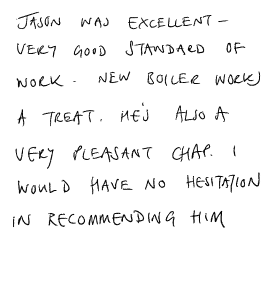 JASON WAS EXCELLENT -
VERY GOOD STANDARD OF
WORK. NEW BOILER WORKS
A TREAT. HE'S ALSO A
VERY PLEASANT CHAP. I
WOULD HAVE NO HESITATION
IN RECOMMENDING HIM